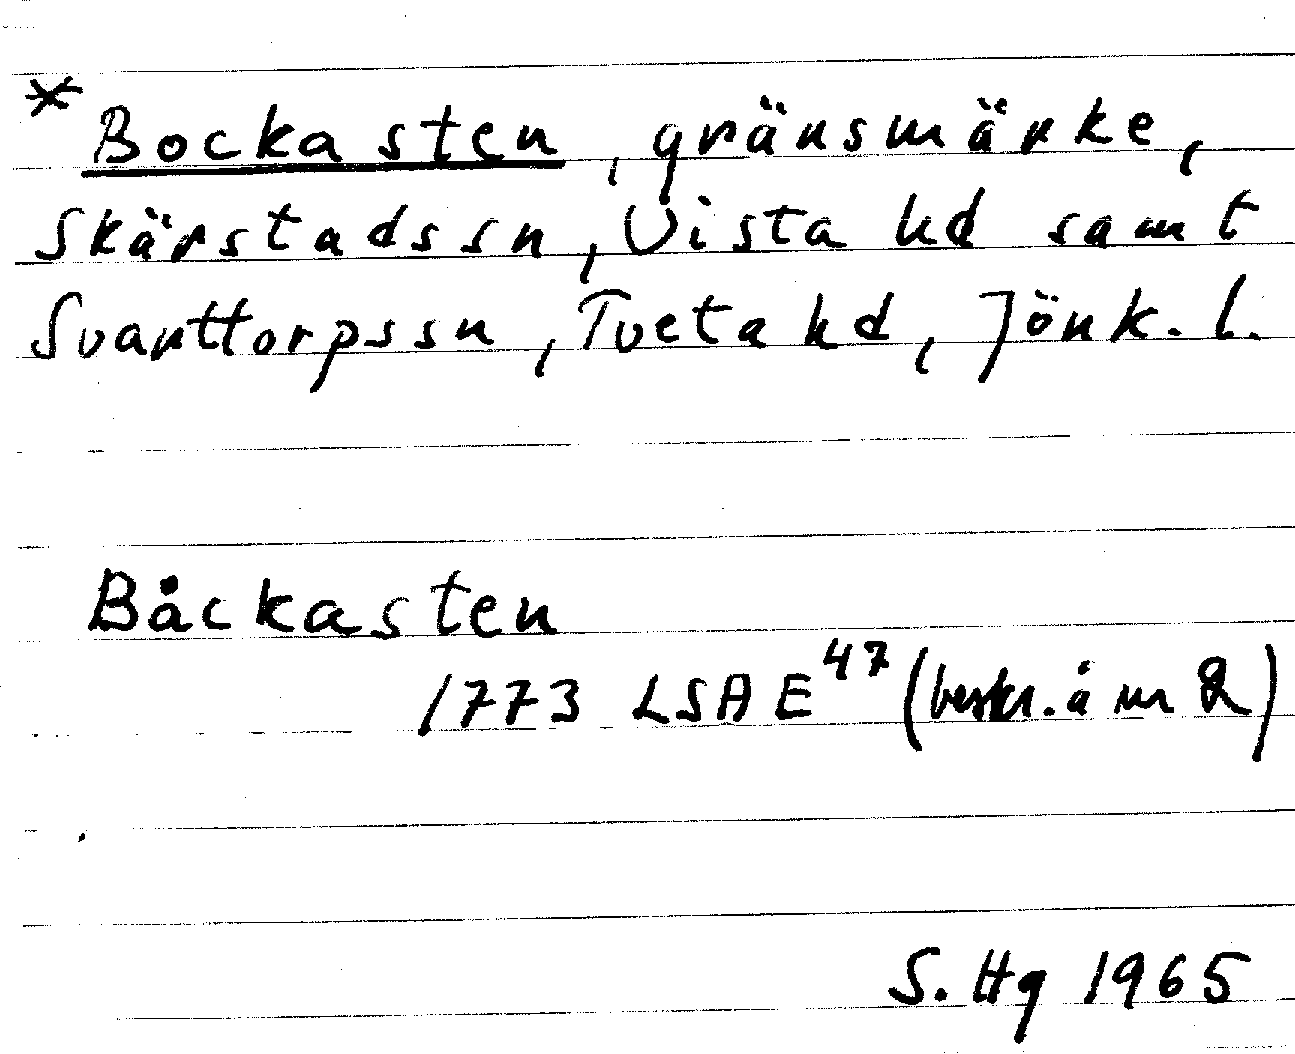 * Bockasten, gränsmärke,
Skärstadssn, Vista hd samt
Svarttorpssn, Tveta hd, Jönk. l.
Båckasten
1773 LSA E47 (beskr. å nr 2)
S. Hg 1965